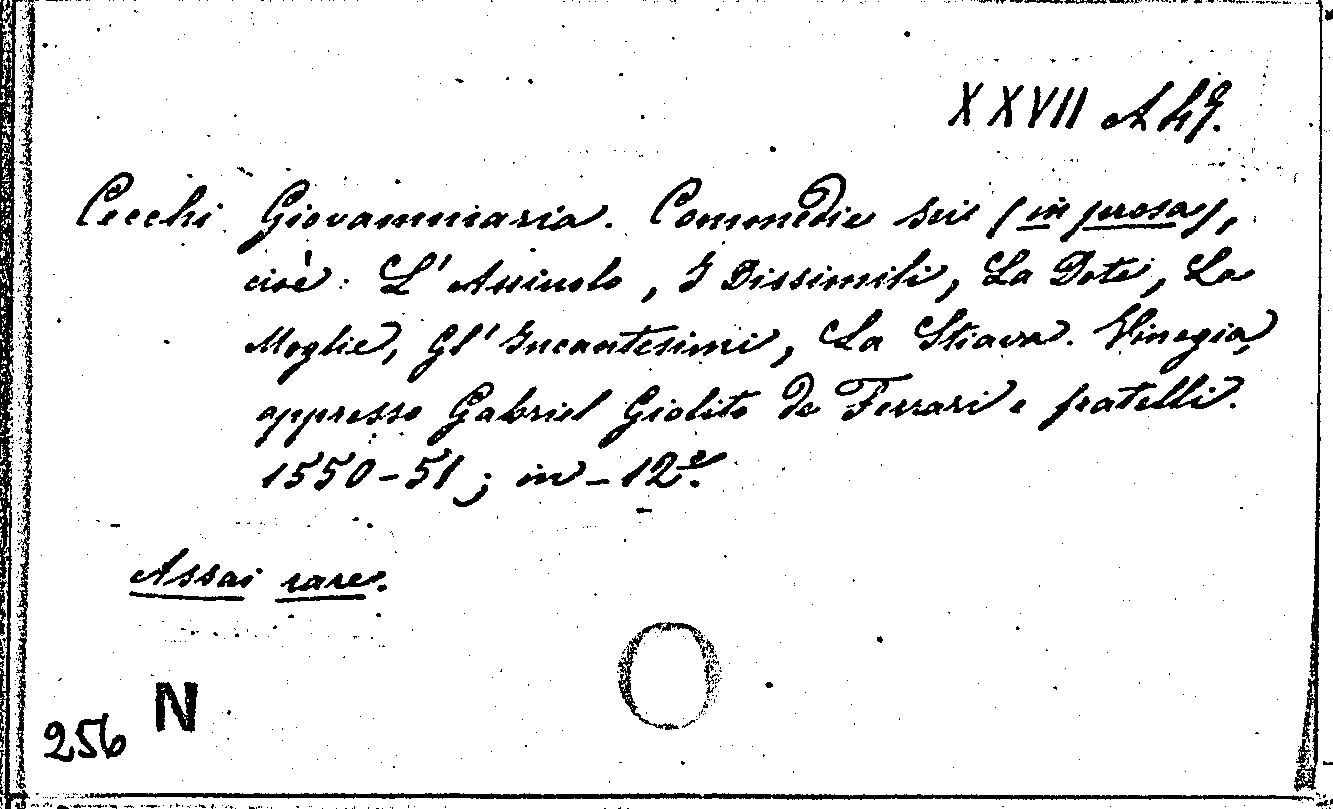 XXVII A 49.
Cecchi Giovammaria. Commedie sei (in prosa),
cioè: L'Assiuolo, I Dissimili, La Dote, La
Moglie, Gl'Incantesimi, La Stiava. Vinegia,
appresso Gabriel Giolito de Ferrari e fratelli.
1550-51; in-12°.
Assai rare.
N
256